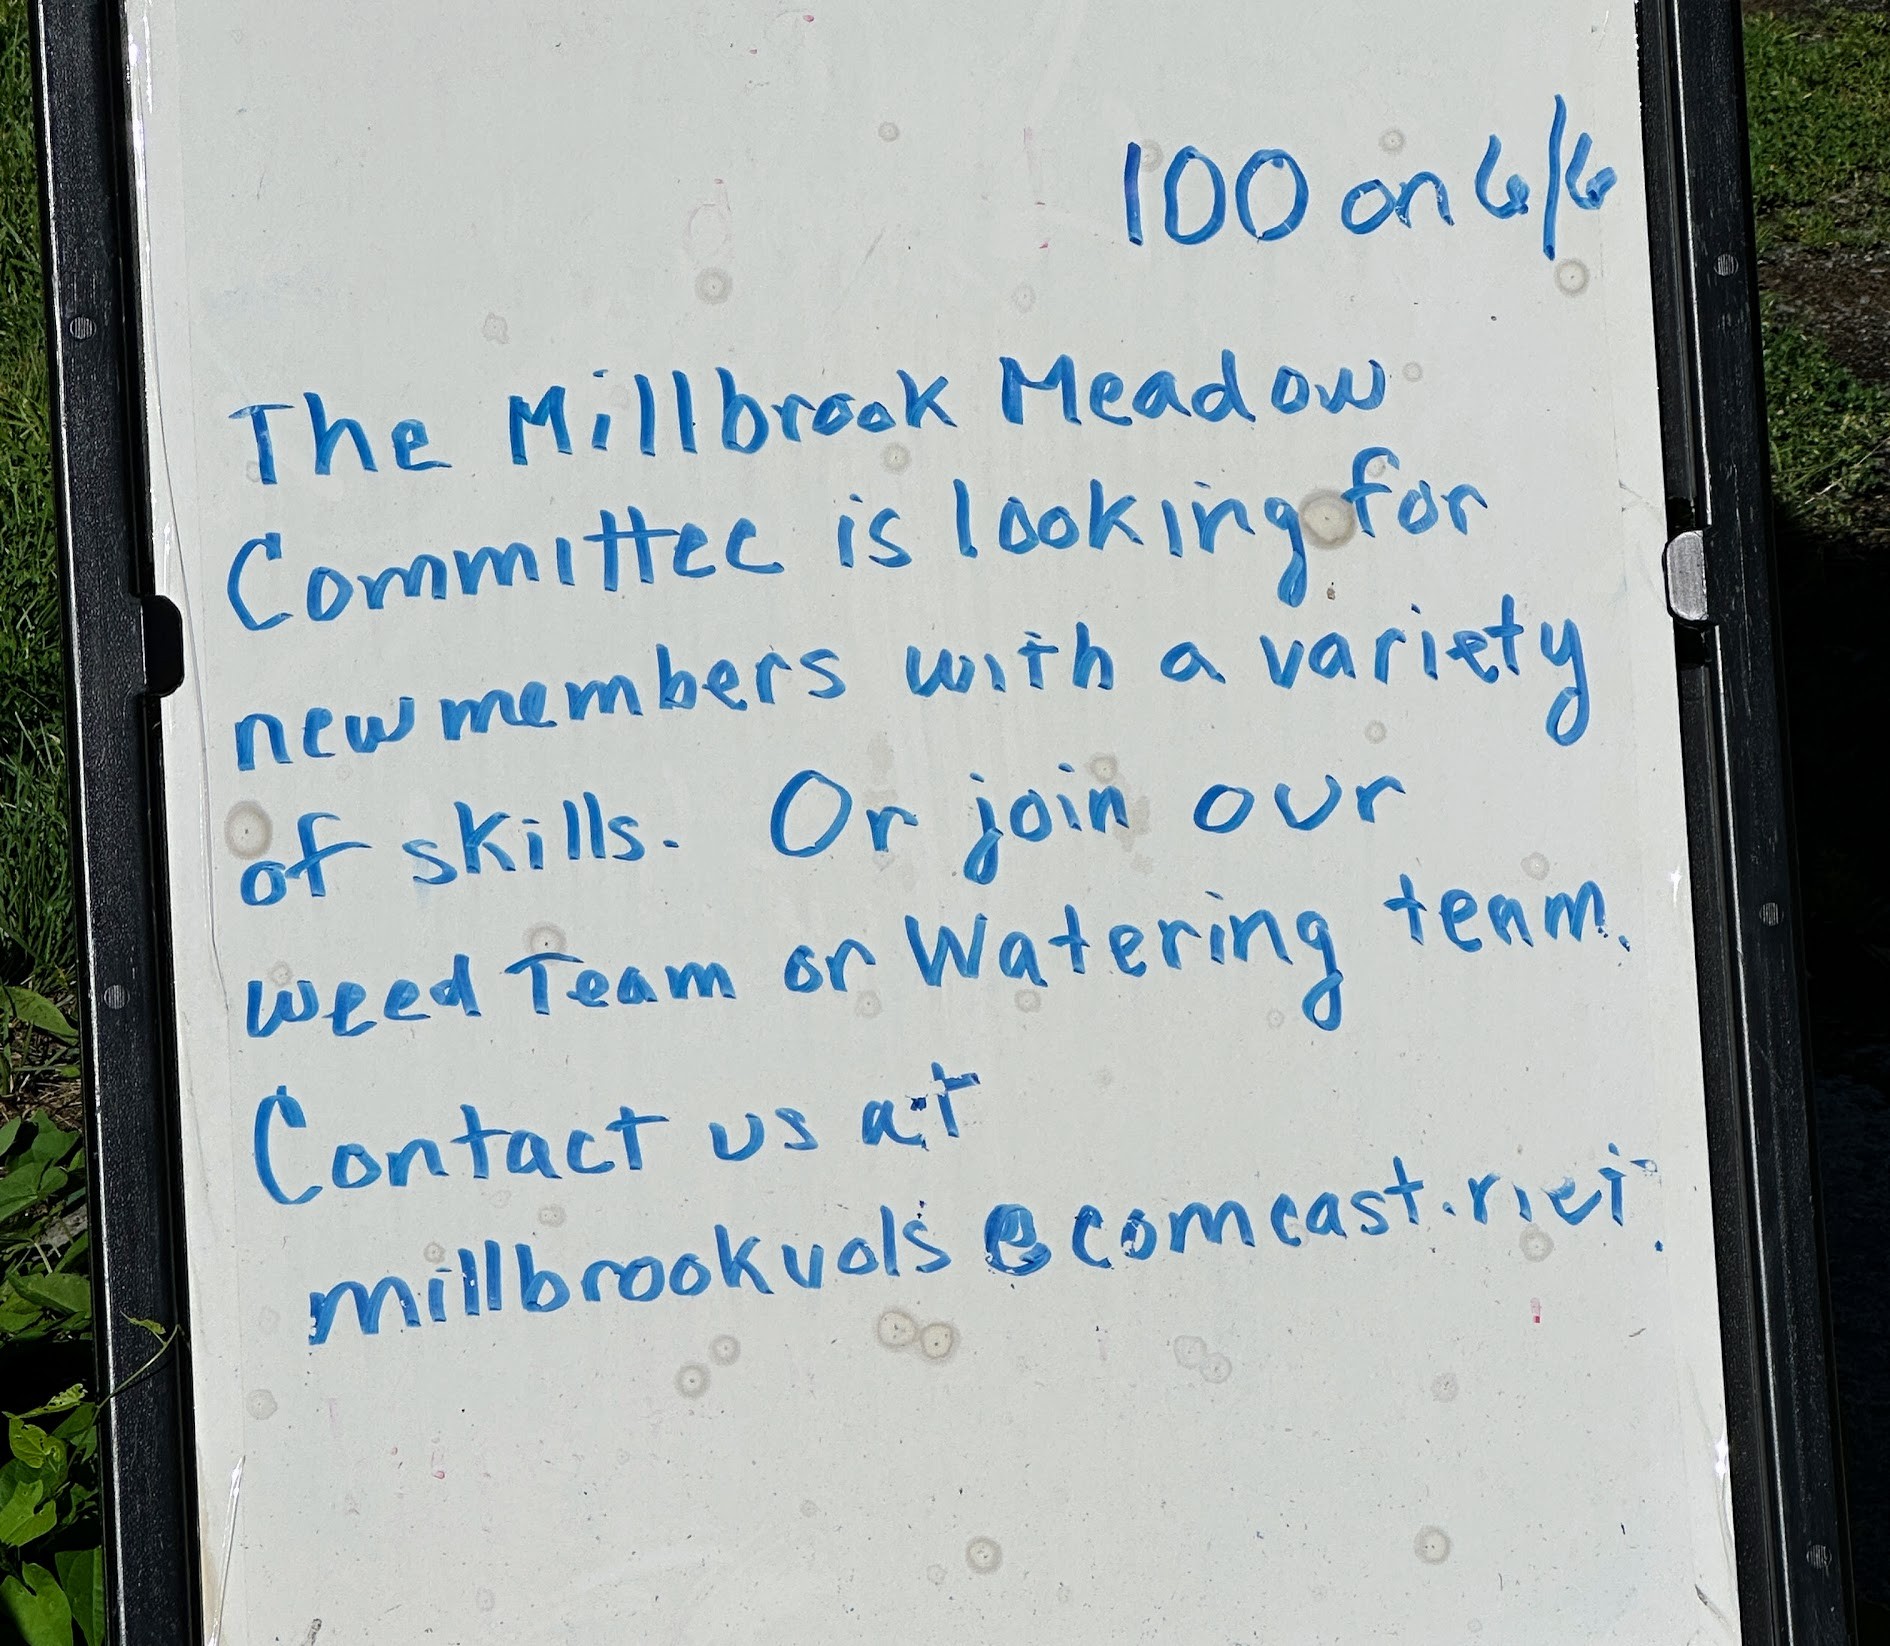 100 on 6/6
The Millbrook Meadow
Committee is looking for
new members with a variety
of skills. Or join our
weed Team or Watering team.
Contact us at
millbrookvols@comcast.net.